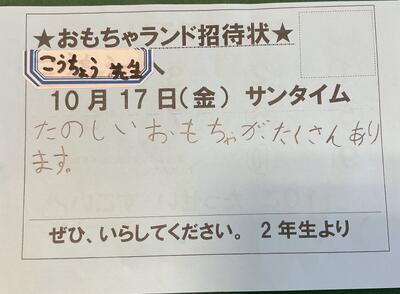 ★おもちゃランド招待状★
こうちょう 先生 へ
10月17日(金) サンタイム
たのしいおもちゃが、たくさんあり
ます。
ぜひ、いらしてください。 2年生より